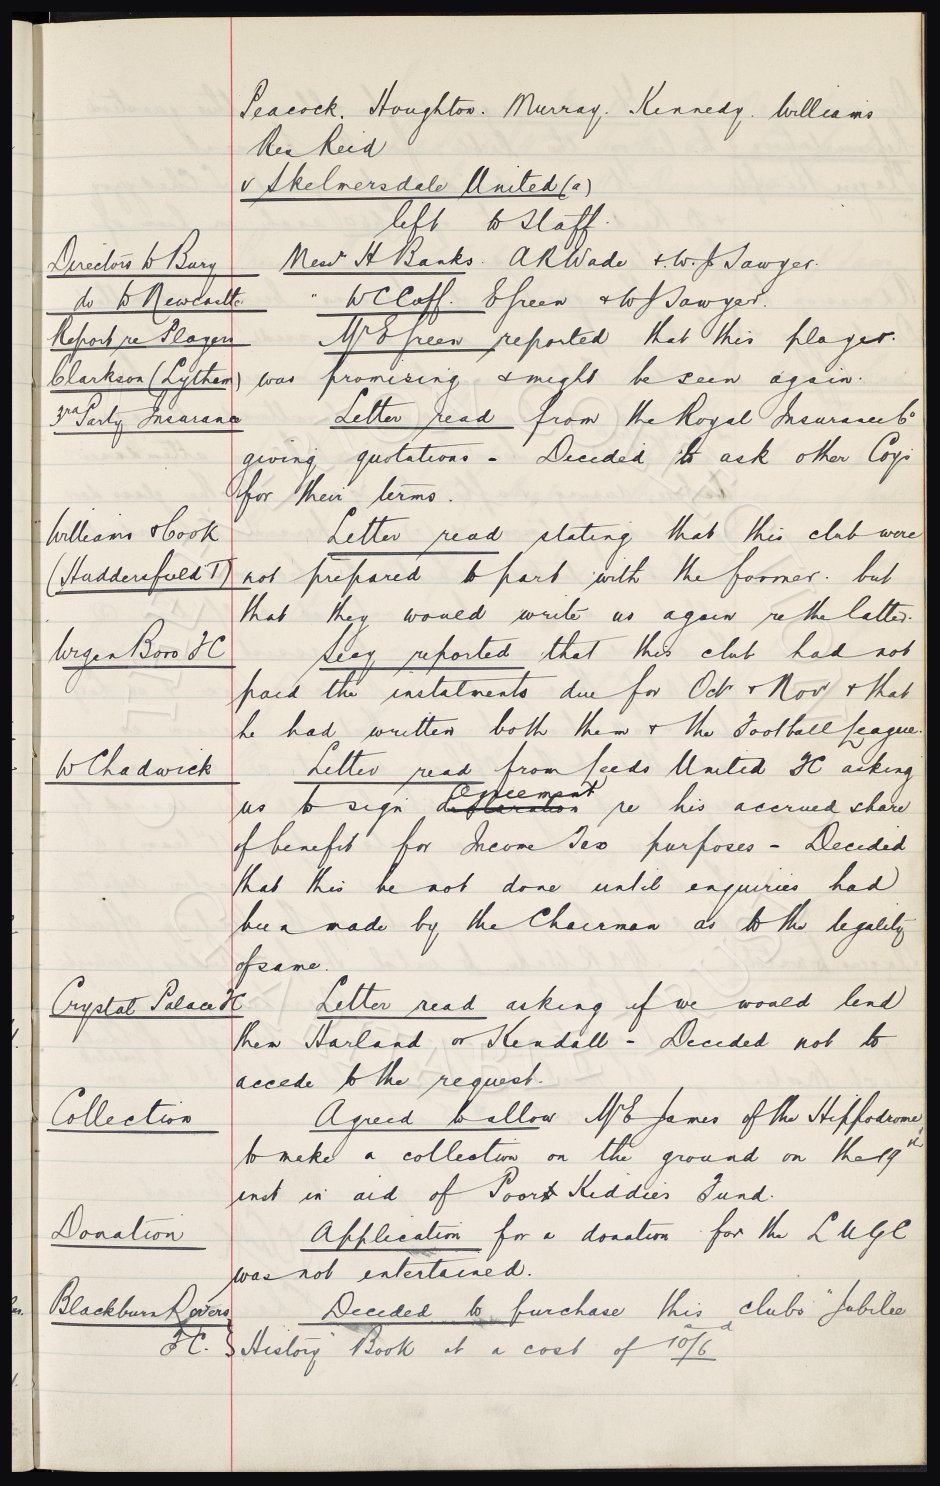 Peacock. Houghton. Murray. Kennedy. Williams
Res Reid
v Skelmersdale United (a)
left to Staff.
Directors to Bury Messrs H Banks. A R Wade & W. J Sawyer.
do to Newcastle " W C Cuff. E Green & W J Sawyer.
Report re Players Mr E Green reported that this player
Clarkson (Lytham) was promising & might be seen again.
3rd Party Insurance Letter read from the Royal Insurance Co
giving quotations - Decided to ask other Coys
for their terms.
Williams & Cook Letter read stating that this club were
(Huddersfield T) not prepared to part with the former. but
that they would write us again re the latter.
Wigan Boro FC Secy reported that this club had not
paid the instalments due for Oct & Nov & that
he had written both them & the Football League.
W Chadwick Letter read from Leeds United FC asking
agreement
us to sign declaration re his accrued share
of benefit for Income Tax purposes - Decided
that this be not done until enquiries had
been made by the Chairman as to the legality
of same.
Crystal Palace FC Letter read asking if we would lend
them Harland or Kendall - Decided not to
accede to the request.
Collection Agreed to allow Mr E James of the Hippodrome
to make a collection on the ground on the 19th
inst in aid of Poor Kiddies Fund.
Donation Application for a donation for the L U G C
was not entertained.
Blackburn Rovers Decided to purchase this clubs "Jubilee
FC. } History Book at a cost of 10/6d